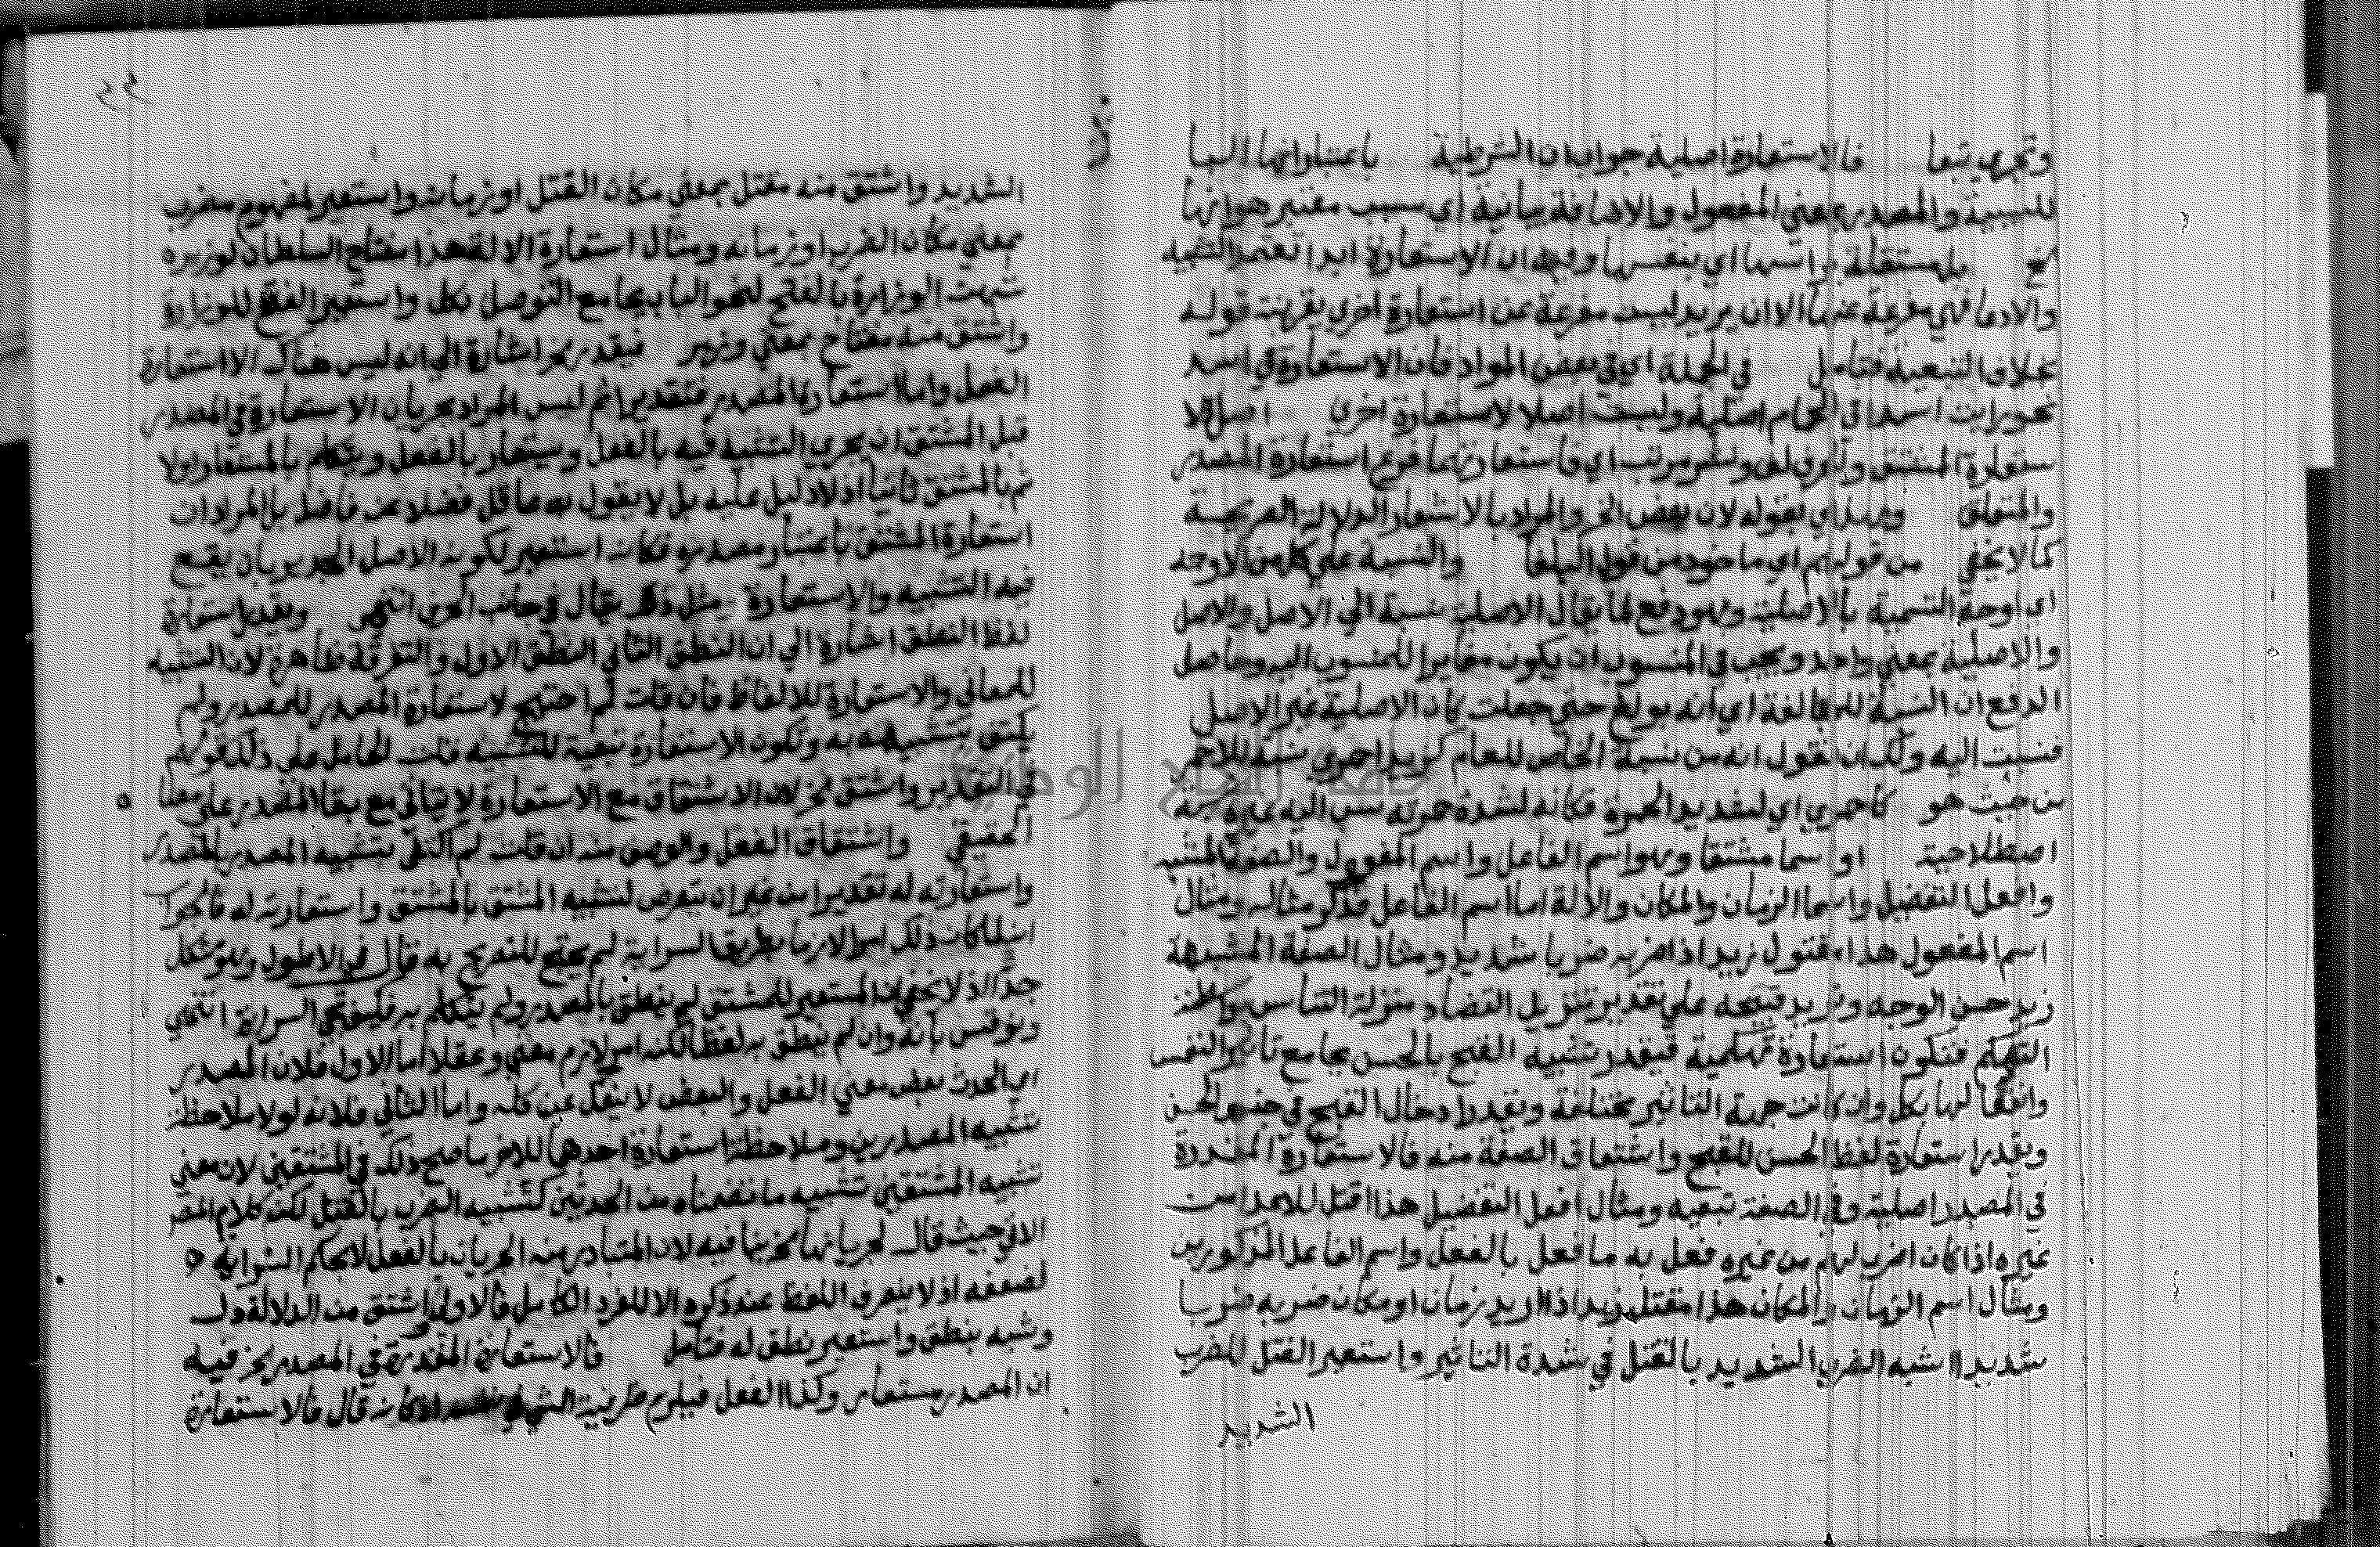 وتجري تبعا فالاستعارة اصلية جواب ان الشرطية باعتبار انها البا
للسببية والمصدر بمعني المفعول والاضافة بيانية اي بسبب معتبر هو انها
بل مستقلة براسها اي بنفسها وفيه ان الاستعارة ابدا تعتمد التشبيه
والادعا فهي مفرعة عنها الا ان يريد ليست مفرعة عن استعارة اخري بقرينة قوله
بخلاف التبعية فتامل في الجملة اي في بعض المواد فان الاستعارة في اسد
نحو رايت اسدا في الحمام اصلية وليست اصلا لاستعارة اخري اصلا لا
ستعارة المشتق والحرف لف ونشر مرتب اي فاستعارتهما فرع استعارة المصدر
والمتعلق وبهذا اي بقوله لان بعض الخ والمراد بالاشعار الدلالة الصريحة
كما لا يخفي من قولهم اي ماخوذ من قول البلغا والنسبة علي كل من الاوجه
اي اوجه التسمية بالاصلية وهو دفع لما يقال الاصلية نسبة الي الاصل والاصل
والاصلية بمعني واحد ويجب في المنسوب ان يكون مغايرا للمنسوب اليه وحاصل
الدفع ان النسبة للمبالغة اي انه بولغ حتي جعلت كان الاصلية غير الاصل
فنسبت اليه ولك ان تقول انه من نسبة الخاص للعام كزيد احمري نسبة للاحمر
من حيث هو كاحمري اي لشديد الحمرة فكانه لشدة حمرته نسب اليه غيره
اصطلاحية او سما مشتقا وهو اسم الفاعل واسم المفعول والصفة المشبهة
وافعل التفضيل واسما الزمان والمكان والالة اما اسم الفاعل فذكر مثاله ومثال
اسم المفعول هذا مقتول زيد اذا ضربه ضربا شديدا ومثال الصفة المشبهة
زيد حسن الوجه وتريد قبيحه علي تقدير تنزيل التضاد منزلة التناسب
التهكم فتكون استعارة تهكمية فيقدر تشبيه القبح بالحسن بجامع تاثير النفس
وانفعالها بكل وان كانت جهة التاثير مختلفة ويقدر ادخال القبح في جنس الحسن
ويقدر استعارة لفظ الحسن للقبح واشتقاق الصفة منه فالاستعارة المقدرة
في المصدر اصلية وفي الصفة تبعيه ومثال افعل التفضيل هذا اقتل للاعدا من
غيره اذا كان اضرب لهم من غيره ففعل به ما فعل بالفعل واسم الفاعل المذكورين
ومثال اسم الزمان والمكان هذا مقتل زيد اذا اريد زمان او مكان ضربه ضربا
شديدا شبه الضرب الشديد بالقتل في شدة التاثير واستعير القتل للضرب
الشديد
الشديد واشتق منه مقتل بمعني مكان القتل او زمانه واستعير لمفهوم مضرب
بمعني مكان الضرب او زمانه ومثال استعارة الالة هذا مفتاح السلطان لوزيره
شبهت الوزارة بالفتح لنحو الباب بجامع التوصل بكل واستعير الفتح للوزارة
واشتق منه مفتاح بمعني وزير فيقدر بخ اشارة الي انه ليس هناك الا استعارة
الفعل واما استعارة المصدر فتقدير اثم ليس المراد بجريان الاستعارة في المصدر
قبل المشتق ان يجري التشبيه فيه بالفعل ويستعار بالفعل ويتكلم بالمستعار اولا
ثم بالمشتق ثانيا اذ لا دليل عليه بل لا يقول به عاقل فضلا عن فاضل بل المراد ان
استعارة المشتق باعتبار مصدره فكانه استعير لكونه الاصل الجدير بان يقع
فيه التشبيه والاستعارة مثل ذلك يقال في جانب الحرف انتهي ويقدر استعارة
لفظ النطق اشارة الي ان النطق الثاني النطق الاول والتفرقة ظاهرة لان التشبيه
للمعاني والاستعارة للالفاظ فان قلت لم احتيج لاستعارة المصدر للمصدر ولم
يكتف بتشبيهه به وتكون الاستعارة تبعية للتشبيه قلت الحامل علي ذلك قولهم
في التقدير واشتق بخ لان الاشتقاق مع الاستعارة لا يتاتي مع بقا المصدر علي معنا
الحقيقي واشتقاق الفعل والوصف منه ان قلت لم اكتفي بتشبيه المصدر بالمصدر
واستعارته له تقديرا من غير ان يتعرض لتشبيه المشتق بالمشتق واستعارته له فالجواب
انه لما كان ذلك امرا لازما بطريق السراية لم يحتج للتصريح به قال في الاطول وهو مشكل
جدا اذ لا يخفي ان المستعير للمشتق لم ينطق بالمصدر ولم يتكلم به فكيف تجي السراية انتهي
ونوقش بانه وان لم ينطق به لفظا لكنه امر لازم معني وعقلا اما الاول فلان المصدر
اي الحدث بعض معني الفعل والبعض لا ينفك عن كله واما الثاني فلانه لولا ملاحظة
تشبيه المصدرين وملاحظة استعارة احدهما للاخر ما صح ذلك في المشتقين لان معني
تشبيه المشتقين تشبيه ما تضمناه من الحدثين كتشبيه الضرب بالقتل لكنه كلام المص
الاتي حيث قال لجريانها بخ ينافيه لان المتبادر منه الجريان بالفعل لا بحكم السراية
لضعفه اذ لا ينصرف اللفظ عند ذكره الا للفرد الكامل فالاولي اشتق من الدلالة دل
وشبه بنطق واستعير نطق له فتامل فالاستعارة المقدرة في المصدر بخ فيه
ان المصدر مستعار وكذا الفعل فيلزم ظرفية الشي في نفسه كانه قال فالاستعارة